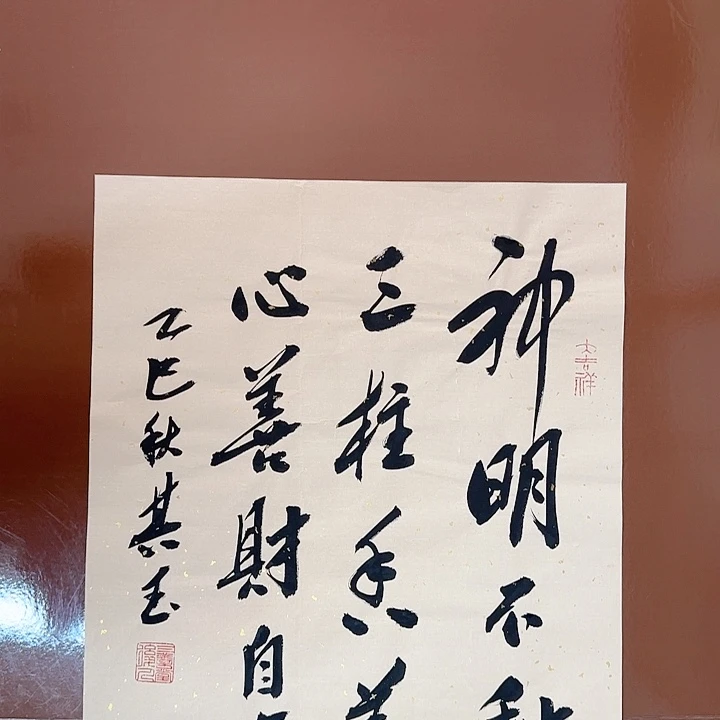 神明不
三柱香
心善財自
乙巳秋其玉
大吉祥